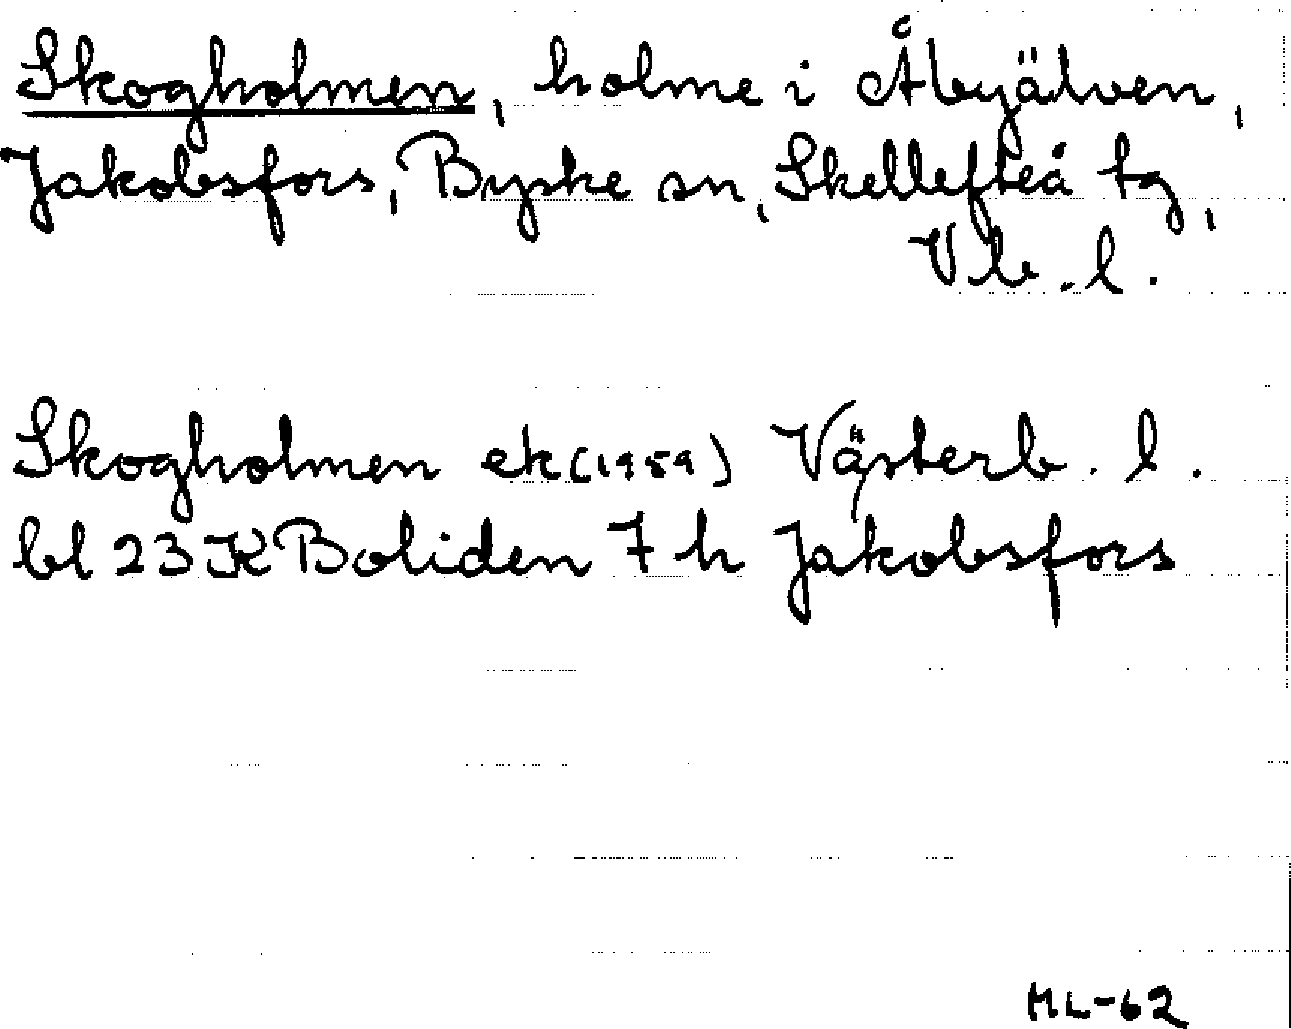 Skogholmen, holme i Åbyälven,
Jakobsfors, Byske sn, Skellefteå tg,
Vb.l.
Skogholmen ek (1959) Västerb. l.
bl 23 K Boliden 7 h Jakobsfors
ML-62